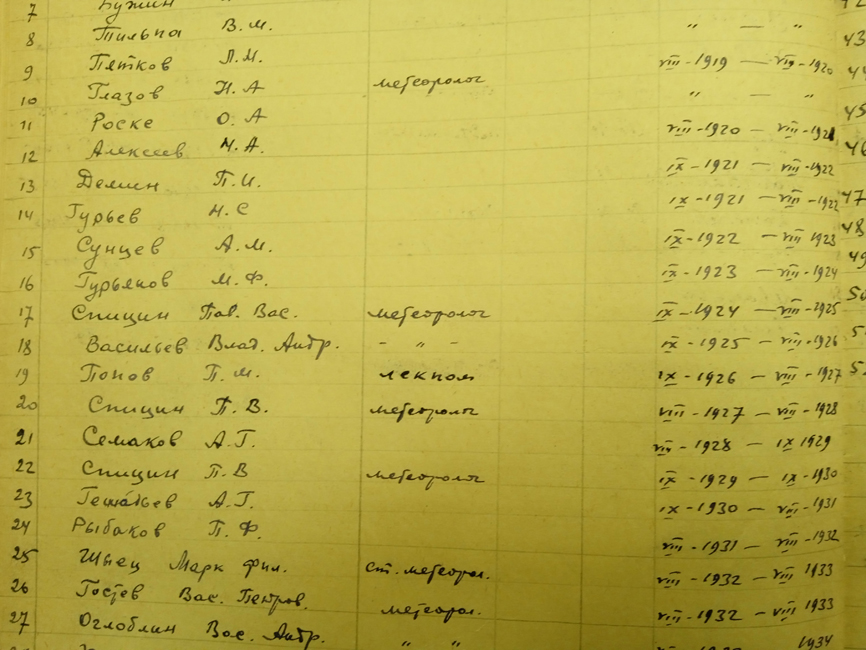 7 Бужин
8 Тильпа В. М. " — "
9 Пятков Л. М. VIII - 1919 — VIII - 1920
10 Глазов Н. А метеоролог " — "
11 Роске О. А VIII - 1920 — VIII - 1921
12 Алексеев Н. А. IX - 1921 — VIII - 1922
13 Демин П. И. IX - 1921 — VIII - 1922
14 Гурьев Н. С IX - 1922 — VIII 1923
15 Сунцев А. М. IX - 1923 — VIII - 1924
16 Гурьянов М. Ф.
17 Спицин Пав. Вас. метеоролог IX - 1924 — VIII - 1925
18 Васильев Влад. Андр. - " - IX - 1925 — VIII - 1926
19 Попов П. М. лекпом IX - 1926 — VIII - 1927
20 Спицин П. В. метеоролог VIII - 1927 — VIII - 1928
21 Семаков А. Г. VIII - 1928 — IX 1929
22 Спицин П. В метеоролог IX - 1929 — IX - 1930
23 А. Г. IX - 1930 — VIII - 1931
24 Рыбаков П. Ф. VIII - 1931 — VIII - 1932
25 Швец Марк Фил. ст. метеорол. VIII - 1932 — VIII 1933
26 Гостев Вас. Петров. метеорол. VIII - 1932 — VIII 1933
27 Оглоблин Вас. Андр. " " 1934
43
45
46
47
48
49